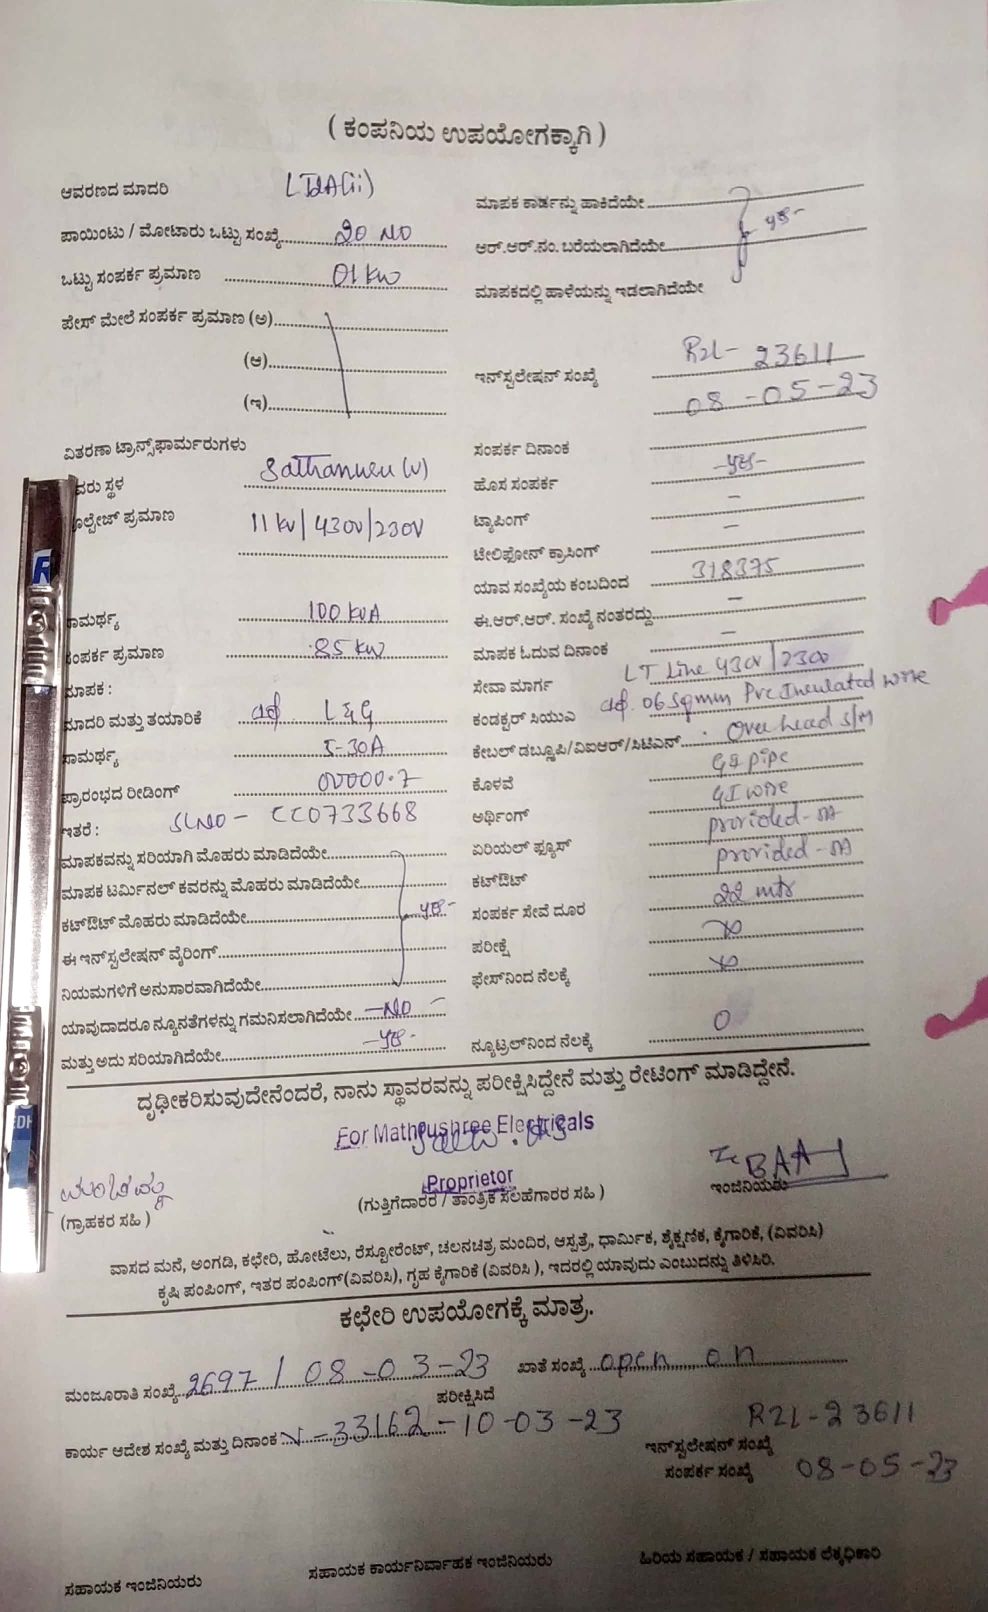 ( ಕಂಪನಿಯ ಉಪಯೋಗಕ್ಕಾಗಿ )
ಆವರಣದ ಮಾದರಿ LT2A(ii)
ಪಾಯಿಂಟು / ಮೋಟಾರು ಒಟ್ಟು ಸಂಖ್ಯೆ 20 NO
ಒಟ್ಟು ಸಂಪರ್ಕ ಪ್ರಮಾಣ 01 KW
ಪೇಸ್ ಮೇಲೆ ಸಂಪರ್ಕ ಪ್ರಮಾಣ (ಅ)
(ಆ)
(ಇ)
ವಿತರಣಾ ಟ್ರಾನ್ಸ್‌ಫಾರ್ಮರುಗಳು
ವರು ಸ್ಥಳ Sathanuru (V)
ಲ್ಟೇಜ್ ಪ್ರಮಾಣ 11 KV / 430V / 230V
ಾಮರ್ಥ್ಯ 100 KVA
ಸಂಪರ್ಕ ಪ್ರಮಾಣ 85 KW
ಮಾಪಕ :
ಮಾದರಿ ಮತ್ತು ತಯಾರಿಕೆ L&G
ಸಾಮರ್ಥ್ಯ 5-30A
ಪ್ರಾರಂಭದ ರೀಡಿಂಗ್ 00000.7
ಇತರೆ : SLNO - CC0733668
ಮಾಪಕವನ್ನು ಸರಿಯಾಗಿ ಮೊಹರು ಮಾಡಿದೆಯೇ
ಮಾಪಕ ಟರ್ಮಿನಲ್ ಕವರನ್ನು ಮೊಹರು ಮಾಡಿದೆಯೇ
ಕಟ್‌ಔಟ್ ಮೊಹರು ಮಾಡಿದೆಯೇ yes-
ಈ ಇನ್‌ಸ್ಟಲೇಷನ್ ವೈರಿಂಗ್
ನಿಯಮಗಳಿಗೆ ಅನುಸಾರವಾಗಿದೆಯೇ
ಯಾವುದಾದರೂ ನ್ಯೂನತೆಗಳನ್ನು ಗಮನಿಸಲಾಗಿದೆಯೇ -NO-
ಮತ್ತು ಅದು ಸರಿಯಾಗಿದೆಯೇ -yes-
ಮಾಪಕ ಕಾರ್ಡನ್ನು ಹಾಕಿದೆಯೇ
ಆರ್.ಆರ್.ನಂ. ಬರೆಯಲಾಗಿದೆಯೇ yes-
ಮಾಪಕದಲ್ಲಿ ಹಾಳೆಯನ್ನು ಇಡಲಾಗಿದೆಯೇ
ಇನ್‌ಸ್ಟಲೇಷನ್ ಸಂಖ್ಯೆ R2L- 23611
08-05-23
ಸಂಪರ್ಕ ದಿನಾಂಕ
ಹೊಸ ಸಂಪರ್ಕ -yes-
ಟ್ಯಾಪಿಂಗ್ -
ಟೇಲಿಫೋನ್ ಕ್ರಾಸಿಂಗ್ -
ಯಾವ ಸಂಖ್ಯೆಯ ಕಂಬದಿಂದ 318375
ಈ.ಆರ್.ಆರ್. ಸಂಖ್ಯೆ ನಂತರದ್ದು -
ಮಾಪಕ ಓದುವ ದಿನಾಂಕ -
ಸೇವಾ ಮಾರ್ಗ LT Line 430V/230V
ಕಂಡಕ್ಟರ್ ಸಿಯುಎ 06 Sqmm Pvc Insulated wire
ಕೇಬಲ್ ಡಬ್ಲೂಪಿ/ವಿಐಆರ್/ಸಿಟಿಎನ್ Over head S/M
ಕೊಳವೆ GI pipe
ಅರ್ಥಿಂಗ್ GI wire
ಏರಿಯಲ್ ಫ್ಯೂಸ್ provided-5A
ಕಟ್‌ಔಟ್ provided-5A
ಸಂಪರ್ಕ ಸೇವೆ ದೂರ 22 mtr
ಪರೀಕ್ಷೆ
ಫೇಸ್‌ನಿಂದ ನೆಲಕ್ಕೆ
ನ್ಯೂಟ್ರಲ್‌ನಿಂದ ನೆಲಕ್ಕೆ 0
ದೃಢೀಕರಿಸುವುದೇನೆಂದರೆ, ನಾನು ಸ್ಥಾವರವನ್ನು ಪರೀಕ್ಷಿಸಿದ್ದೇನೆ ಮತ್ತು ರೇಟಿಂಗ್ ಮಾಡಿದ್ದೇನೆ.
For Mathrushree Electricals
Proprietor
(ಗ್ರಾಹಕರ ಸಹಿ )
(ಗುತ್ತಿಗೆದಾರರ / ತಾಂತ್ರಿಕ ಸಲಹೆಗಾರರ ಸಹಿ )
ಇಂಜಿನಿಯರು
ವಾಸದ ಮನೆ, ಅಂಗಡಿ, ಕಛೇರಿ, ಹೋಟೆಲು, ರೆಸ್ಟೋರೆಂಟ್, ಚಲನಚಿತ್ರ ಮಂದಿರ, ಆಸ್ಪತ್ರೆ, ಧಾರ್ಮಿಕ, ಶೈಕ್ಷಣಿಕ, ಕೈಗಾರಿಕೆ, (ವಿವರಿಸಿ)
ಕೃಷಿ ಪಂಪಿಂಗ್, ಇತರ ಪಂಪಿಂಗ್(ವಿವರಿಸಿ), ಗೃಹ ಕೈಗಾರಿಕೆ (ವಿವರಿಸಿ ), ಇದರಲ್ಲಿ ಯಾವುದು ಎಂಬುದನ್ನು ತಿಳಿಸಿರಿ.
ಕಛೇರಿ ಉಪಯೋಗಕ್ಕೆ ಮಾತ್ರ.
ಮಂಜೂರಾತಿ ಸಂಖ್ಯೆ 2697 / 08-03-23 ಖಾತೆ ಸಂಖ್ಯೆ open on
ಪರೀಕ್ಷಿಸಿದೆ
ಕಾರ್ಯ ಆದೇಶ ಸಂಖ್ಯೆ ಮತ್ತು ದಿನಾಂಕ N-33162-10-03-23
R2L-23611
ಇನ್‌ಸ್ಟಲೇಷನ್ ಸಂಖ್ಯೆ
ಸಂಪರ್ಕ ಸಂಖ್ಯೆ 08-05-23
ಸಹಾಯಕ ಇಂಜಿನಿಯರು ಸಹಾಯಕ ಕಾರ್ಯನಿರ್ವಾಹಕ ಇಂಜಿನಿಯರು ಹಿರಿಯ ಸಹಾಯಕ / ಸಹಾಯಕ ಲೆಕ್ಕಧಿಕಾರಿ